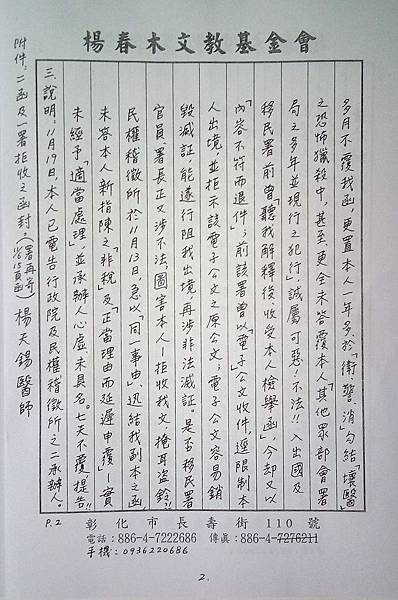 楊春木文教基金會
多月不覆我函，更置本人一年多於「衛、警、消」勾結「壞醫」
之恐怖殲殺中，甚至更全未答覆本人其他眾部會署
局之多年並現行之犯行，誠屬可惡！不法!!入出國及
移民署前曾「聽我解釋後收受本人檢舉函」，今却又以
「內容不符而退件」；前該署曾以「電子」公文收件，逕限制本
人出境，並拒示該電子公文之原公文；電子公文容易銷
毀滅証，能遂行阻我出境，再涉非法滅証。是否移民署
官員、署長正又涉不法圖害本人－拒收我文，掩耳盜鈴!!
民權稽徵所於11月13日，急以「同一事由」、迅結我副本之函，
未答本人新指陳之「非稅」及「正當理由而延遲申覆」－實
未經予「適當處理」，並承辦人心虛，未具名。七天不覆提告!!
三、說明：11月19日，本人已電告行政院及民權稽徵所之二承辦人。
附件：二函及一署拒收之函封。
楊天錫醫師
P.2
彰化市長壽街110號
電話：886-4-7222686 傳真：886-4-7276211
手機：0936220686
2.